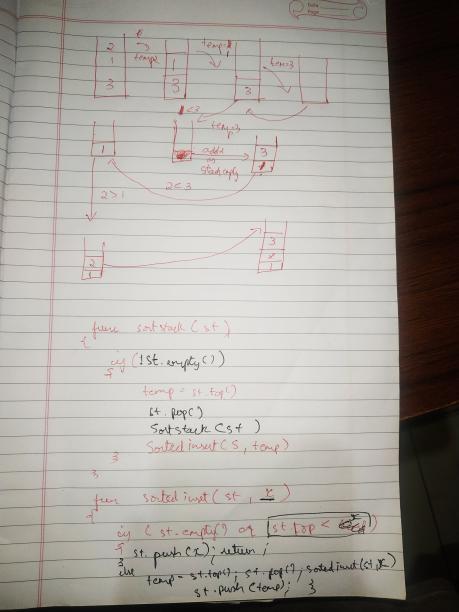 Date
Page
2
1
3
temp2
1
3
temp=1
3
tem=3
1<3
temp=3
1
add
stack empty
3
2>1
2<3
2
1
3
2
1
func sortstack ( st )
{
if ( !st.empty() )
{
temp = st.top()
st.pop()
Sortstack (st )
Sorted insert ( S, temp )
}
}
func sorted inset ( st , x )
{
if ( st.empty() or st.pop < x )
{ st.push (x); return ;
}
else temp = st.top(); st.pop(); sorted insert (st, x)
st.push (temp); }